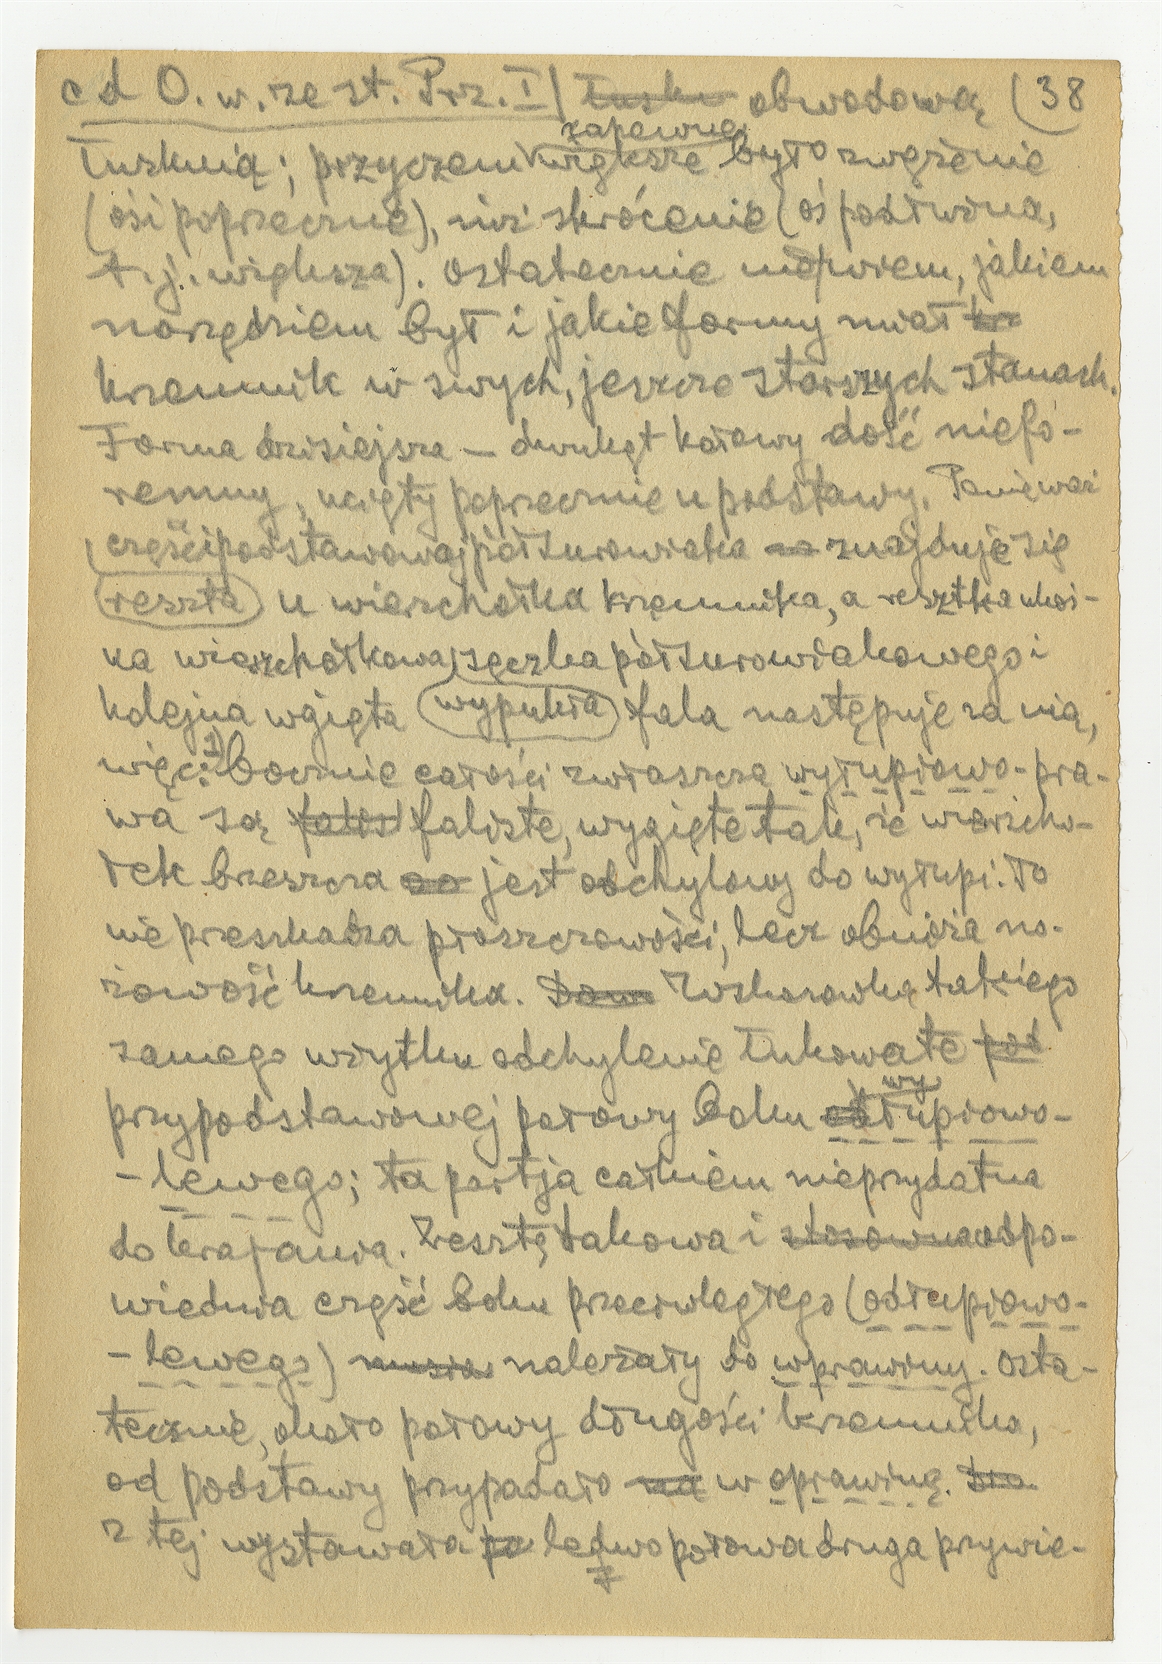 c d O. w. ze st. Prz. I) łusk obwodową (38
łusknią; przyczem zapewne większe było zwężenie
(osi poprzecznie), niż skrócenie (oś podłużna,
t.j. większa). Ostatecznie nie wiem, jakiem
narzędziem był i jakie formy miał
krzemnik w swych, jeszcze starszych stanach.
Forma dzisiejsza – dwukąt kątowy dość niefo-
remny, ucięty poprzecznie u podstawy. Ponieważ
części podstawowej półsurowiaka znajduje się
reszta u wierzchołka krzemnika, a resztka ukoś-
na wierzchołkowa, sęczka półsurowiakowego i
kolejna wgięta wypukła fala następuje za nią,
więc: 1) bocznie całości zwłaszcza wyłupiowo-pra-
wa są faliste, wygięte tak, że wierzcho-
łek brzeszcza jest odchylony do wyłupi. To
nie przeszkadza płoszczowości, lecz obniża no-
żowość krzemnika. Wskazówką takiego
samego użytku odchylenie łukowate pod
przypodstawowej połowy boku wyłupiowo-
-lewego; ta partja całkiem nieprzydatna
do krajania. Zresztą takowa i stosowna odpo-
wiednia część boku przeciwległego (odłupiowo-
-lewego) musia należały do wprawiny. Osta-
tecznie, około połowy długości krzemnika,
od podstawy przypadało na w oprawinę.
z tej wystawała po ledwo połowa druga przywie-